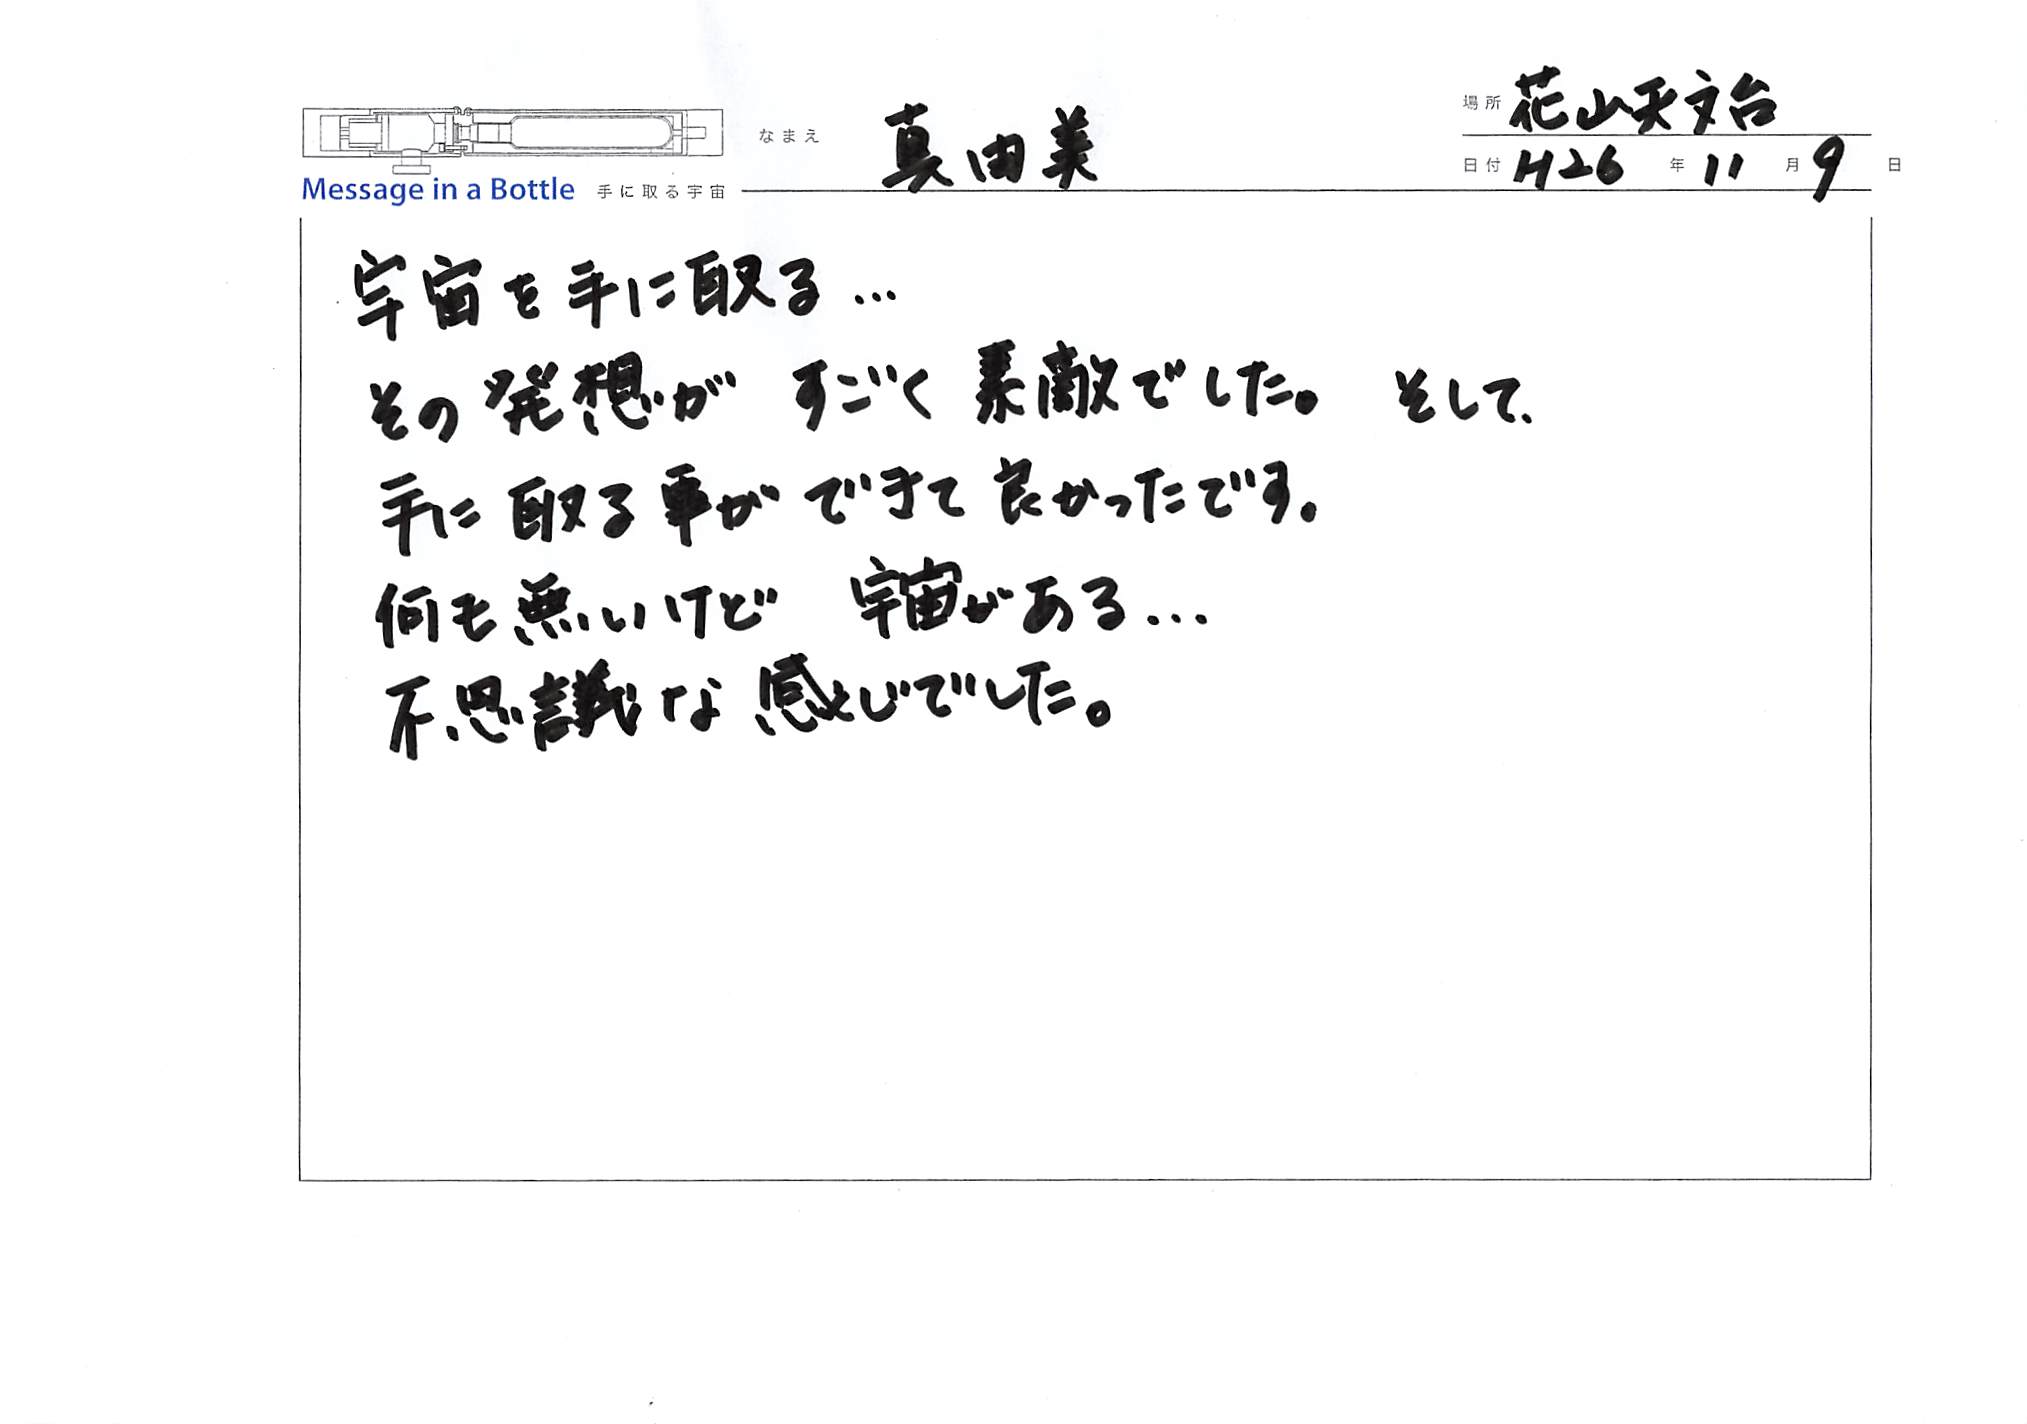 場所 花山天文台
なまえ 真由美
日付 H26 年 11 月 9 日
Message in a Bottle 手に取る宇宙
宇宙を手に取る…
その発想が すごく素敵でした。 そして、
手に取る事ができて良かったです。
何も無いけど 宇宙がある…
不思議な感じでした。